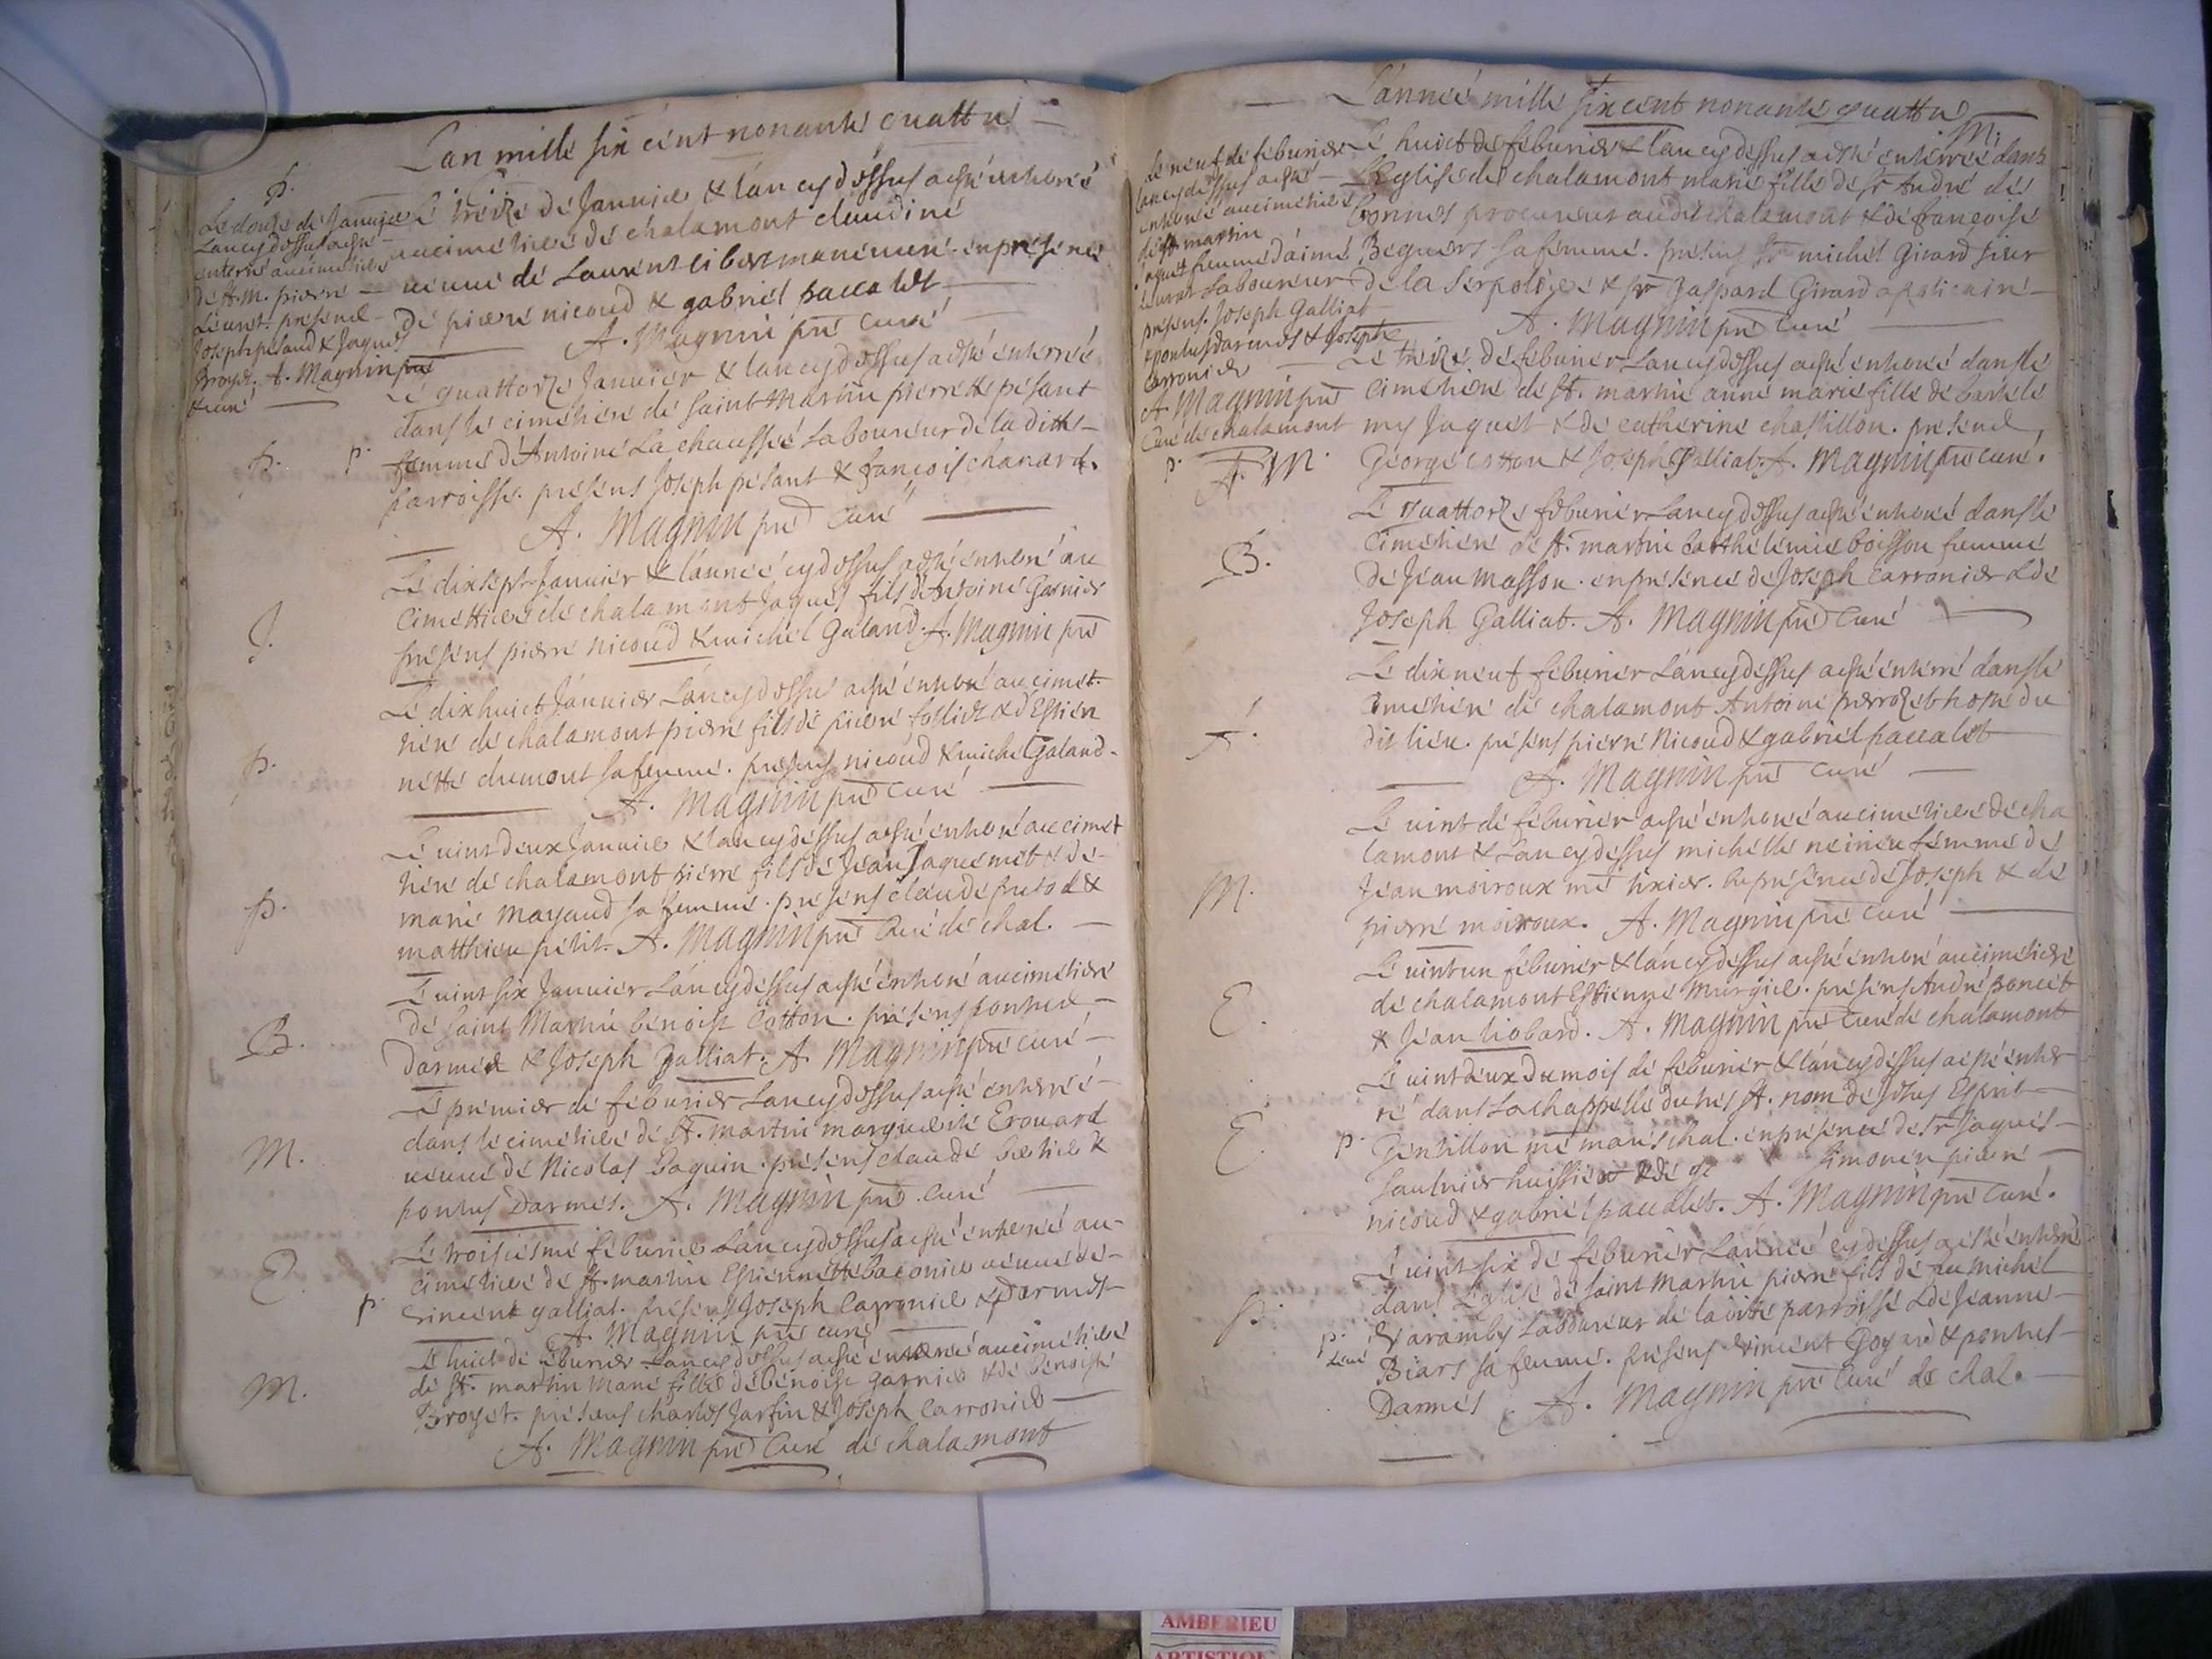 L'an mille six cent nonante quattre
p.
Le douze de Janvier
L'an cy dessus a esté
enterré au cimetiere
de St. M. pierre
Leuret. presens
Joseph pesand & Jaques
Broyer. A. Magnin pre
curé
Le treize de Janvier & l'an cy dessus a esté enterré
au cimetiere de chalamont claudine
veuve de Laurent en presence
de pierre nicoud & gabriel paccalet
A. Magnin pre curé
Le quattorze Janvier & l'an cy dessus a esté enterrée
dans le cimetiere de saint Martin pierrette pesant
p. p. femme d'Antoine La chaussée Laboureur de la dithe
parroisse. presens Joseph pesant & francois chanard.
A. Magnin pre curé
Le dixsept Janvier & l'année cy dessus a esté enterré au
J. cimettiere de chalamont Jaques fils d'Antoine Garnier
presens pierre nicoud & michel Galand. A. Magnin pre
Le dixhuict Janvier L'an cy dessus a esté enterré au cimet-
tiere de chalamont pierre fils de pierre & d'Estien
p. nette dumont sa femme. presens nicoud & michel Galand.
A. Magnin pre curé
Le vint deux Janvier & l'an cy dessus a esté enterré au cimet
tiere de chalamont pierre fils de Jean Jaquemet & de
p. marie mayaud sa femme. presens claude &
matthieu petit. A. Magnin pre Curé de chal.
Le vint six Janvier L'an cy dessus a esté enterré au cimetiere
B. de saint Martin benoist Cotton. presens pontus
Darmes & Joseph Galliat. A. Magnin pre curé
Le premier de feburier L'an cy dessus a esté enterrée
dans le cimetiere de St. martin marguerite Erouard
M. veuve de Nicolas Baquin. presens claude &
pontus Darmes. A. Magnin pre curé
Le troisiesme feburier L'an cy dessus a esté enterrée au
E. cimetiere de St. martin Estiennette veuve de
p. vincent galliat. presens Joseph Carronier & p Darmes
A. Magnin pre curé
Le huict de feburier L'an cy dessus a esté enterrée au cimetiere
M. de St. martin Marie fille de benoist garnier & de benoiste
Broyet. presens charles Jarfin & Joseph Carronier
A. Magnin pre Curé de chalamont
L'année mille six cent nonante quattre
M.
Le neuf de feburier
L'an cy dessus a esté
enterré au cimetiere
de St martin
femme d'aimé
Laboureur
presens. Joseph Galliat
& pontus darmes & Joseph
Carronier
A. Magnin pre
Curé de chalamont
Le huict de feburier & l'an cy dessus a esté enterrée dans
L'Eglise de chalamont marie fille de Sr André des
bornes procureur au dit chalamont & de francoise
Beguers sa femme. presens Sr michel Girard sieur
de la & Sr Gaspard Girard apoticaire
A. Magnin pre Curé
Le treize de feburier L'an cy dessus a esté enterré dans le
cimetiere de St. martin anne marie fille de bartele
p. my Jaquet & de catherine chastillon. presens
A. M. George cotton & Joseph Galliat. A. Magnin pre curé.
Le quattorze feburier L'an cy dessus a esté enterré dans le
B. cimetiere de St. martin barthelemie boisson femme
de Jean Masson. en presence de Joseph Carronier & de
Joseph Galliat. A. Magnin pre Curé
Le dixneuf feburier L'an cy dessus a esté enterré dans le
cimetiere de chalamont Antoine hoste du
A. dit lieu. presens pierre Nicoud & gabriel paccalet
A. Magnin pre curé
Le vint de feburier a esté enterré au cimetiere de cha
lamont & L'an cy dessus michelle femme de
M. Jean moiroux me tixier. en presence de Joseph & de
pierre moiroux. A. Magnin pre Curé
Le vint un feburier & l'an cy dessus a esté enterré au cimetiere
E. de chalamont Estienne Murgier. presens André poncet
& Jean liobard. A. Magnin pre Curé de chalamont
Le vint deux du mois de feburier & l'an cy dessus a esté enter
ré dans La chappelle du tres St. nom de Jesus Esprit
E. p. Gentillon me mareschal. en presence de Sr Jaques
Saulnier huissier & de Sr Simonen pierre
nicoud & gabriel paccalet. A. Magnin pre Curé.
Le vint six de feburier L'année cy dessus a esté enterré
dans L'eglise de saint Martin pierre fils de feu michel
p. p. Varamby Laboureur de la dite parroisse & de Jeanne
Biars sa femme. presens vincent Goyard & pontus
Darmes A. Magnin pre Curé de chal.
AMBERIEU
ARTISTIQUE